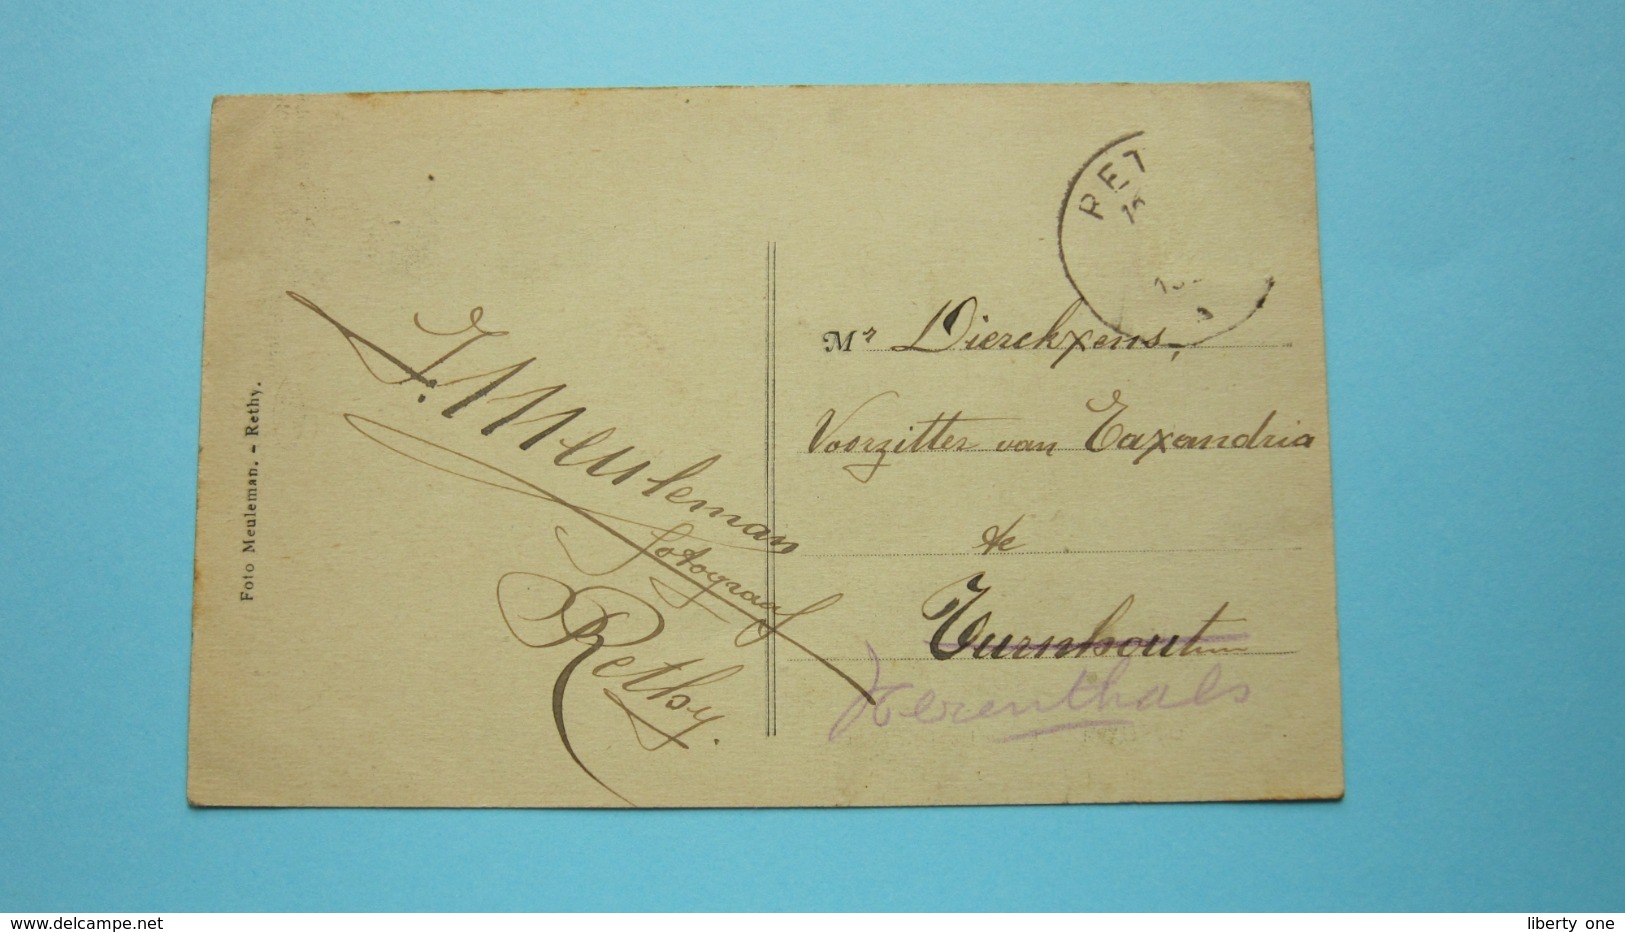 Foto Meuleman. - Rethy.
J. Meuleman
fotograaf
Rethy.
RET
Mr Dierckxens,
Voorzitter van Taxandria
te
Turnhout
Herenthals
www.delcampe.net
liberty_one